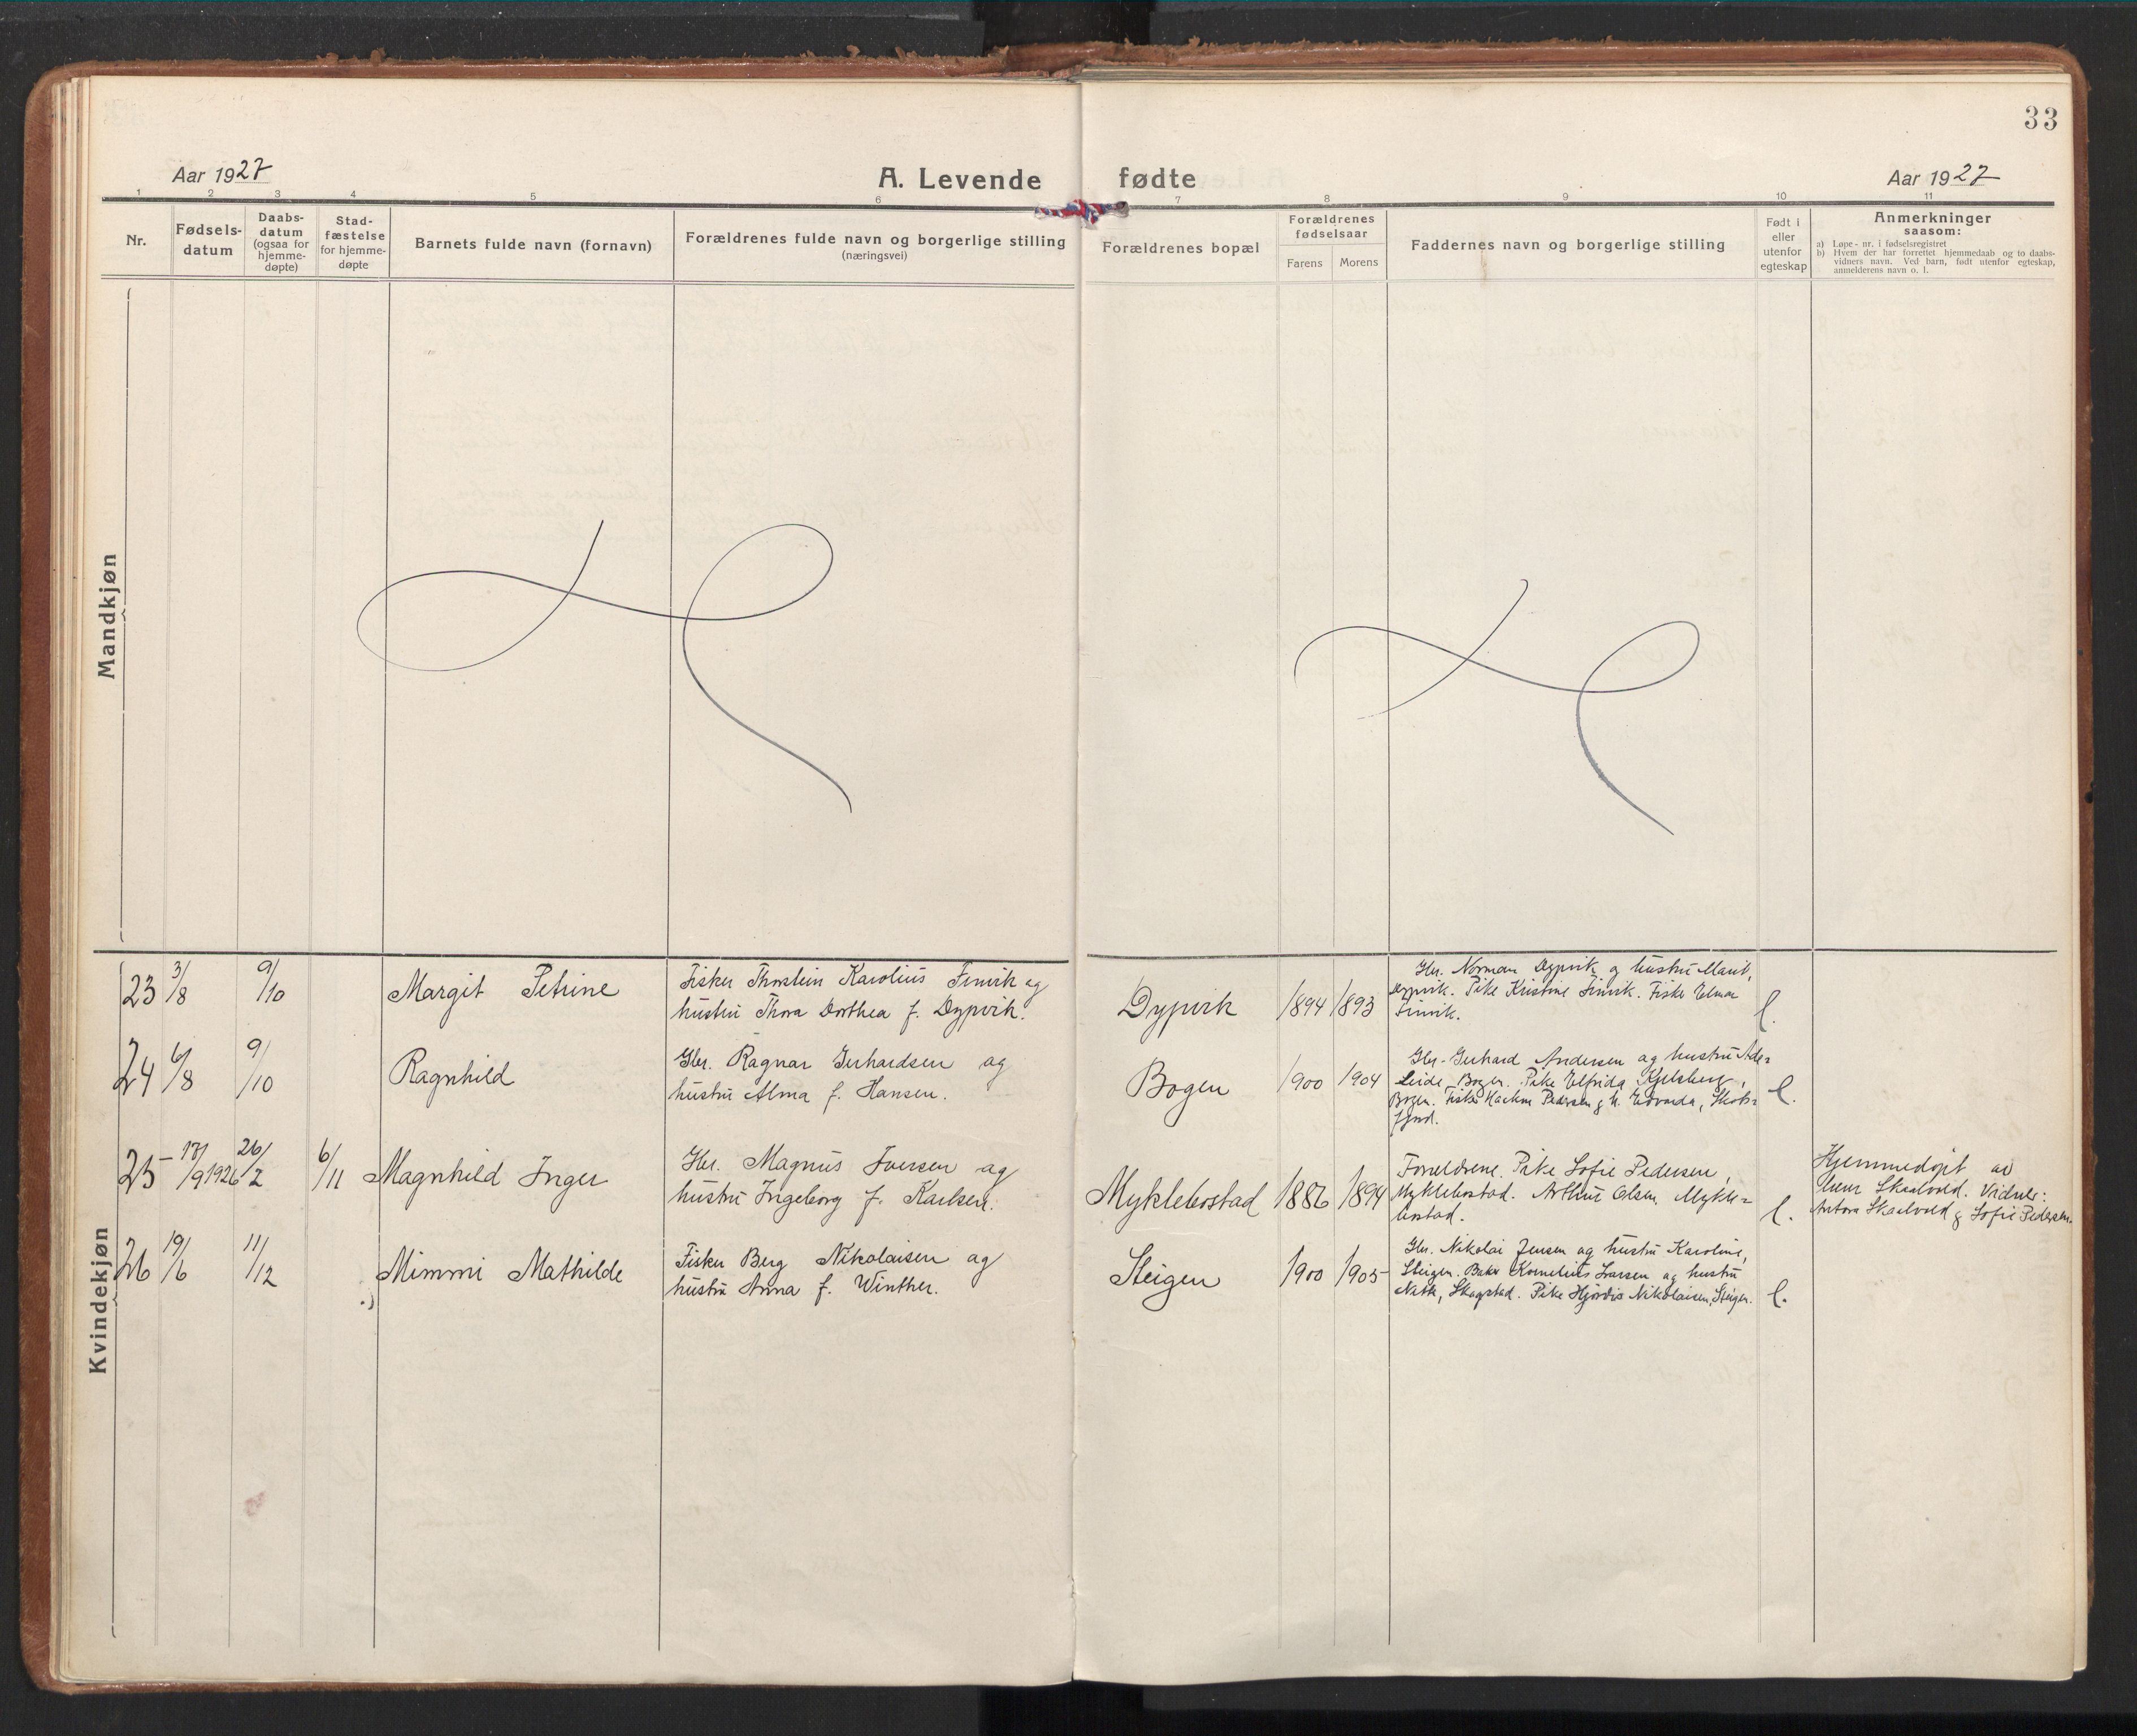 33
Aar 1927
A. Levende fødte
Aar 1927
1 2 3 4 5 6 7 8 9 10 11
Nr.
Fødsels-
datum
Daabs-
datum
(ogsaa for
hjemme-
døpte)
Stad-
fæstelse
for hjemme-
døpte
Barnets fulde navn (fornavn)
Forældrenes fulde navn og borgerlige stilling
(næringsvei)
Forældrenes bopæl
Forældrenes
fødselsaar
Farens Morens
Faddernes navn og borgerlige stilling
Født i
eller
utenfor
egteskap
Anmerkninger
saasom:
a) Løpe- nr. i fødselsregistret
b) Hvem der har forrettet hjemmedaab og to daabs-
vidners navn. Ved barn, født utenfor egteskap,
anmelderens navn o. l.
Mandkjøn
Kvindekjøn
23 3/8 9/10 Margit Petrine
Fisker Thorstein Karolius Finvik og
hustru Thora Dorthea f. Dypvik.
Dypvik 1894 1893
Gbr. Norman Dypvik og hustru Marit,
Dypvik. Pike Kristine Finvik. Fisker Elmar
Finvik.
l.
24 6/8 9/10 Ragnhild
Gbr. Ragnar Gerhardsen og
hustru Alma f. Hansen.
Bogen 1900 1904
Gbr. Gerhard Andersen og hustru Ade=
leide, Bogen. Pike Elfrida Kjelsberg,
Bogen. Fisker Haakon Pedersen & h. Edvarda, Skots=
fjord.
l.
25 17/9 1926 26/2 6/11 Magnhild Inger
Gbr. Magnus Iversen og
hustru Ingeborg f. Karlsen.
Myklebostad 1886 1894
Forældrene. Pike Sofie Pedersen,
Myklebostad. Arthur Olsen, Mykle=
bostad.
l.
Hjemmedøpt av
lærer Skaalvold. Vidner:
Antora Skaalvold & Sofie Pedersen.
26 19/6 11/12 Mimmi Mathilde
Fisker Berg Nikolaisen og
hustru Anna f. Winther.
Steigen 1900 1905
Gbr. Nikolai Jensen og hustru Karoline,
Steigen. Baker Kornelius Larsen og hustru
Skagstad. Pike Hjørdis Nikolaisen, Steigen.
l.